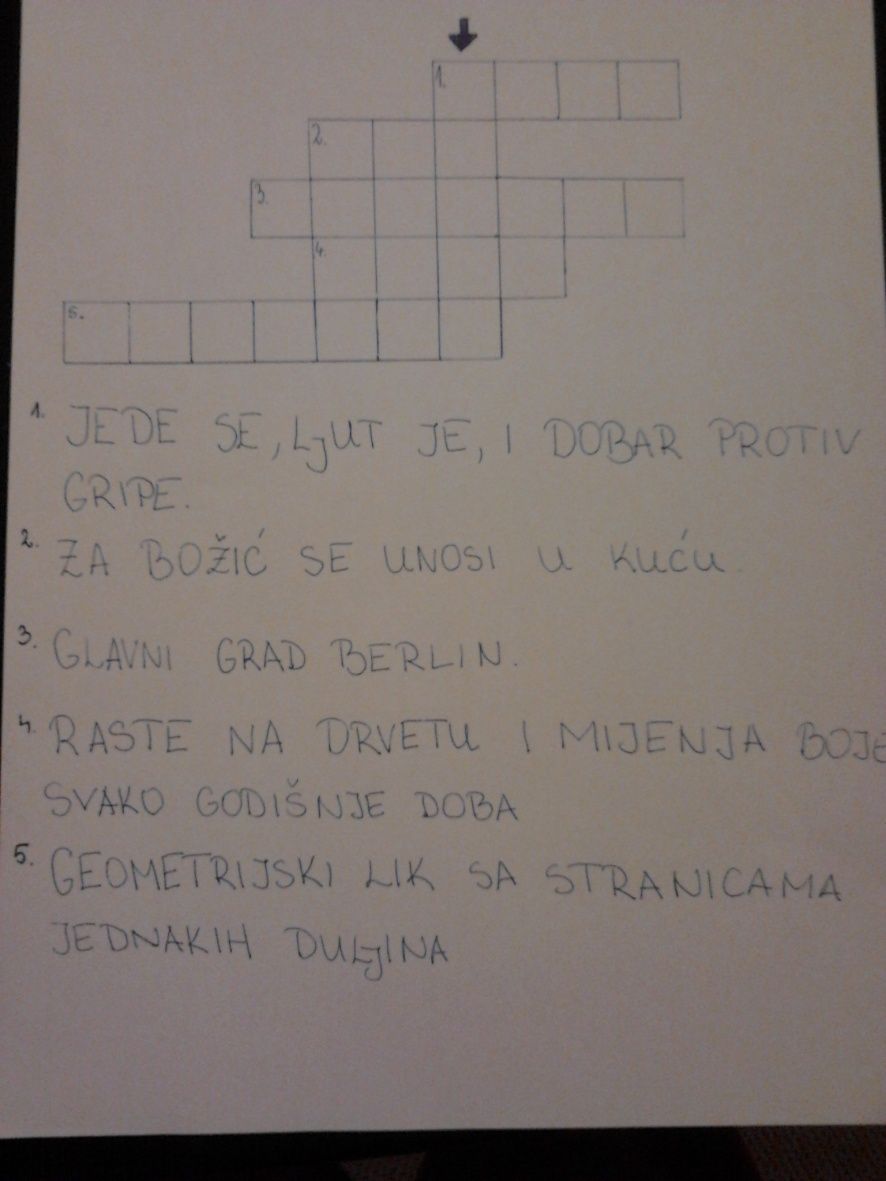 1.
2.
3.
4.
5.
1. JEDE SE, LjUT JE, I DOBAR PROTIV
GRIPE.
2. ZA BOŽIĆ SE UNOSI U KUĆU
3. GLAVNI GRAD BERLIN.
4. RASTE NA DRVETU I MIJENJA BOJE
SVAKO GODIŠNJE DOBA
5. GEOMETRIJSKI LIK SA STRANICAMA
JEDNAKIH DULjINA